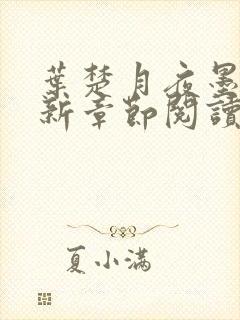 葉楚月夜墨
新章節閱讀
夏小满